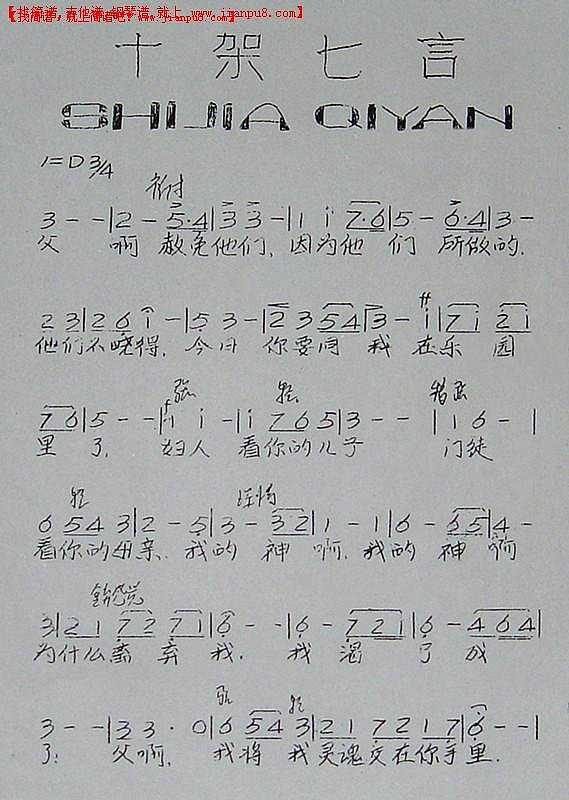 【找简谱,吉他谱,钢琴谱,就上 www.jianpu8.com】
十架七言
SHIJIA QIYAN
1=D 3/4
3 - - | 2 - 5·4 | 3 3 - | 1 i 7·6 | 5 - 6·4 | 3 -
父 啊 赦免他们, 因为他 们 所做的.
2 3 | 2 6 i - | 5 3 - | 2 3 54 | 3 - i | 7i 2i
ff
他们不晓得. 今日 你要同 我 在乐 园
76 | 5 - - | i i - | i 7 6 5 | 3 - - | 1 1 6 - |
f
里 了. 妇人 看你的儿子 门徒
6 54 3 | 2 - 5 | 3 - 32 | 1 - 1 | 6 - 65 | 4 -
看你的母亲. 我的 神 啊. 我的 神 啊
3 | 21 72 71 | 6 - - | 6 - 721 | 6 - 464 |
为什么离 弃 我. 我 渴 了 成
3 - - | 3 3 · 0 | 6 54 3 | 21 7217 | 6 - - |
了: 父啊. 我将 我灵魂交在你手里.